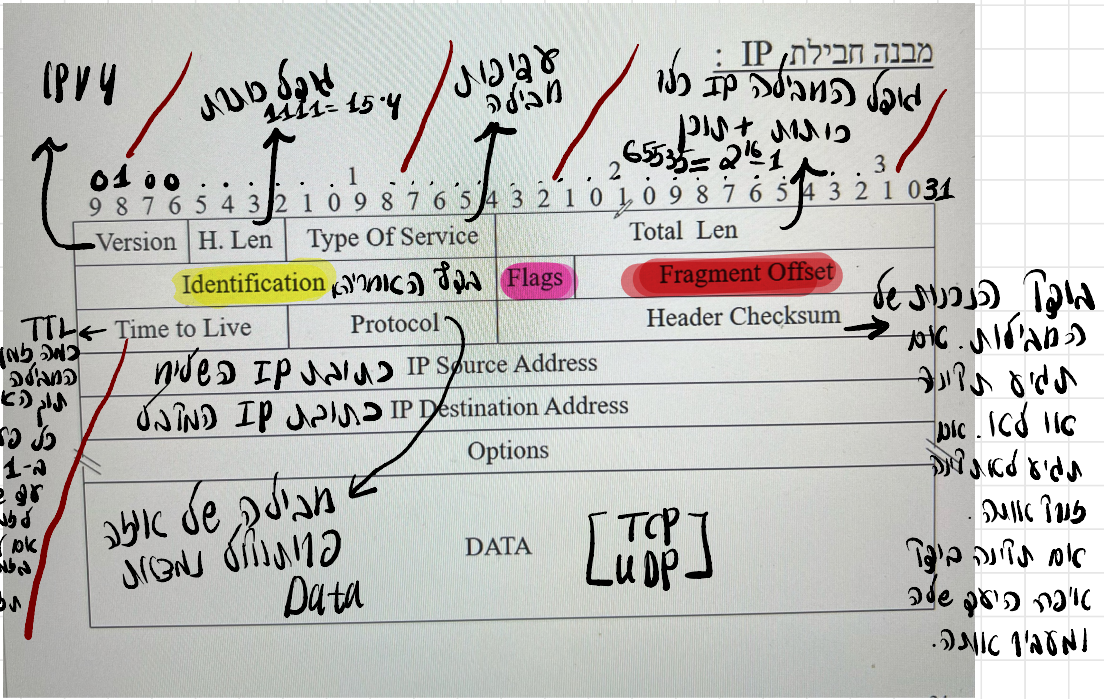 מבנה חבילת IP :
IPV4
גודל כותרת
1111=15·4
עדיפות
חבילה
גודל החבילה IP כולו
כותרת + תוכן
65535=2^16-1
0100
1 2 3
9 8 7 6 5 4 3 2 1 0 9 8 7 6 5 4 3 2 1 0 1 0 9 8 7 6 5 4 3 2 1 0 31
Version H. Len Type Of Service Total Len
Identification Flags Fragment Offset
TTL Time to Live Protocol Header Checksum
כתובת IP השולח IP Source Address
כתובת IP המקבל IP Destination Address
Options
חבילה של איזה
פרוטוקול נמצאת
Data
DATA
[TCP
UDP]
כל
ב-1
אם
בודק הנכונות של
החבילות. אם
תגיע תקינה
או לא. אם
תגיע לא תקינה
זורק אותה.
אם תקינה בודק
איפה היעד שלה
ומעביר אותה.